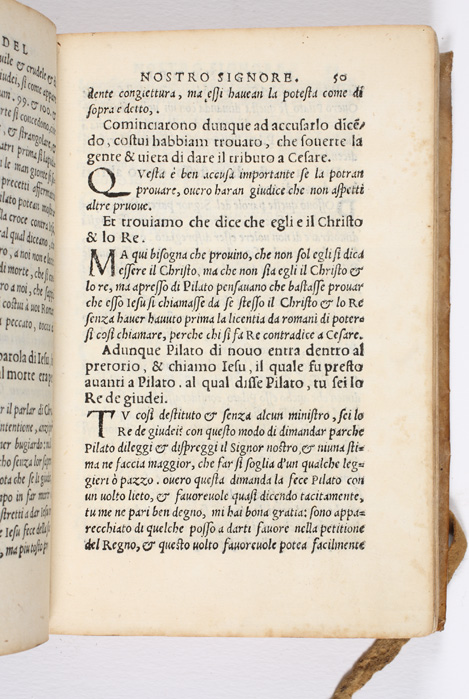 DEL
uile & crudele &
iudei, si come appa
um. 99. & 100.
rte si concedea
, & strangolare,
atri prima si la
le man gionte si
precetti affirma
lato potean mol
la croce contra
al qual diceano,
o, a noi non e lic
di morte, che si
o a noi, che sapp
costui à uoi hau
peccato, tocca
parola di Iesu, l
al morte era pe
r il parlar di Chr
intentione, anzi
er bugiardo: ma
cha senza lor sa
esta, che se gli
mpo in far mor
stretti a dar Iesu
e Iesu fece dell
, ma pou tosto pe
NOSTRO SIGNORE. 50
dente congiettura, ma essi hauean la potesta come di
sopra e detto,.
Cominciarono dunque ad accusarlo dicē/
do, costui habbiam trouato, che souerte la
gente & uieta di dare il tributo a Cesare.
QVesta è ben accusa importante se la potran
prouare, ouero haran giudice che non aspetti
altre pruoue.
Et trouiamo che dice che egli e il Christo
& lo Re.
MA qui bisogna che prouino, che non sol egli si dica
essere il Christo, ma che non sia egli il Christo &
lo re, ma apresso di Pilato pensauano che bastasse prouar
che esso Iesu si chiamasse da se stesso il Christo & lo Re
senza hauer hauuto prima la licentia da romani di poter
si così chiamare, perche chi si fa Re contradice a Cesare.
Adunque Pilato di nouo entra dentro al
pretorio, & chiamo Iesu, il quale fu presto
auanti a Pilato. al qual disse Pilato, tu sei lo
Re de giudei.
TV così destituto & senza alcun ministro, sei lo
Re de giudei? con questo modo di dimandar parche
Pilato dileggi & dispreggi il Signor nostro, & niuna sti/
ma ne faccia maggior, che far si soglia d'un qualche leg/
gieri ò pazzo. ouero questa dimanda la fece Pilato con
un volto lieto, & fauoreuole quasi dicendo tacitamente,
tu me ne pari ben degno, mi hai bona gratia: sono appa/
recchiato di quelche posso a darti fauore nella petitione
del Regno, & questo volto fauoreuole potea facilmente